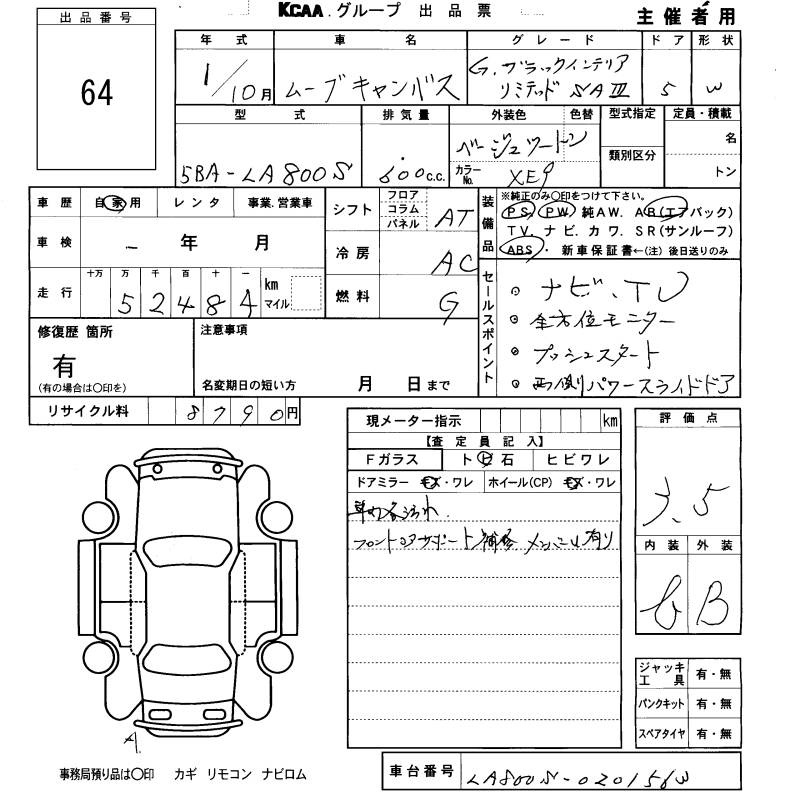 KCAA グループ 出品票
主催者用
出品番号
64
年式 車名 グレード ドア 形状
1/10月 ムーブキャンバス G.ブラックインテリア リミテッド SAⅢ 5 W
型式 排気量 外装色 色替 型式指定 定員・積載
5BA-LA800S 600c.c. ベージュツートン カラーNo. XE9 類別区分 名 トン
車歴 自家用 レンタ 事業.営業車
車検 － 年 月
走行 十万 万 千 百 十 一
52484 km マイル
シフト フロア コラム パネル AT
冷房 AC
燃料 G
装備品 ※純正のみ〇印をつけて下さい。
PS. PW. 純AW. AB(エアバック)
TV. ナビ. カワ. SR(サンルーフ)
ABS・ 新車保証書←(注) 後日送りのみ
セールスポイント
ナビ、TV
全方位モニター
プッシュスタート
両側パワースライドドア
修復歴 箇所
有
(有の場合は〇印を)
注意事項
名変期日の短い方 月 日まで
リサイクル料 8790円
現メーター指示 km
【査定員記入】
Fガラス トビ石 ヒビワレ
ドアミラー キズ・ワレ ホイール(CP) キズ・ワレ
フロントコアサポート補修 メンバー凹有り
評価点
3.5
内装 外装
B
ジャッキ工具 有・無
パンクキット 有・無
スペアタイヤ 有・無
A
事務局預り品は〇印 カギ リモコン ナビロム
車台番号 LA800S-0201563